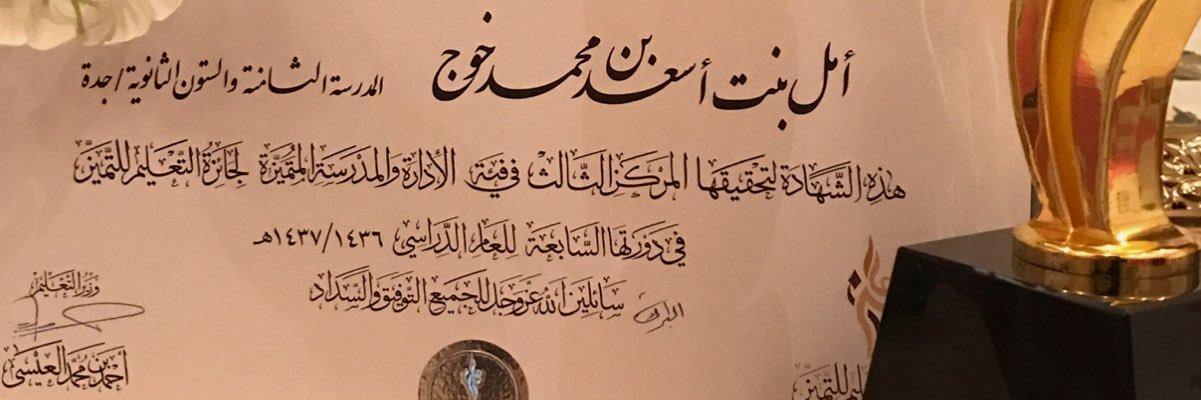 أمل بنت أسعد بن محمد خوج المدرسة الثامنة والستون الثانوية / جدة
هذه الشَّهادة لتحقيقها المركز الثَّالث في فئة الأدارة والمدرسة المتميِّزة لجائزة التَّعليم للتَّميُّز
في دورتها السَّابعة للعام الدِّراسي ١٤٣٦/١٤٣٧هـ
سائلين الله عز وجل للجميع التَّوفيق والسَّداد
وزير التَّعليم
أحمد بن محمَّد العيسى
للتميز